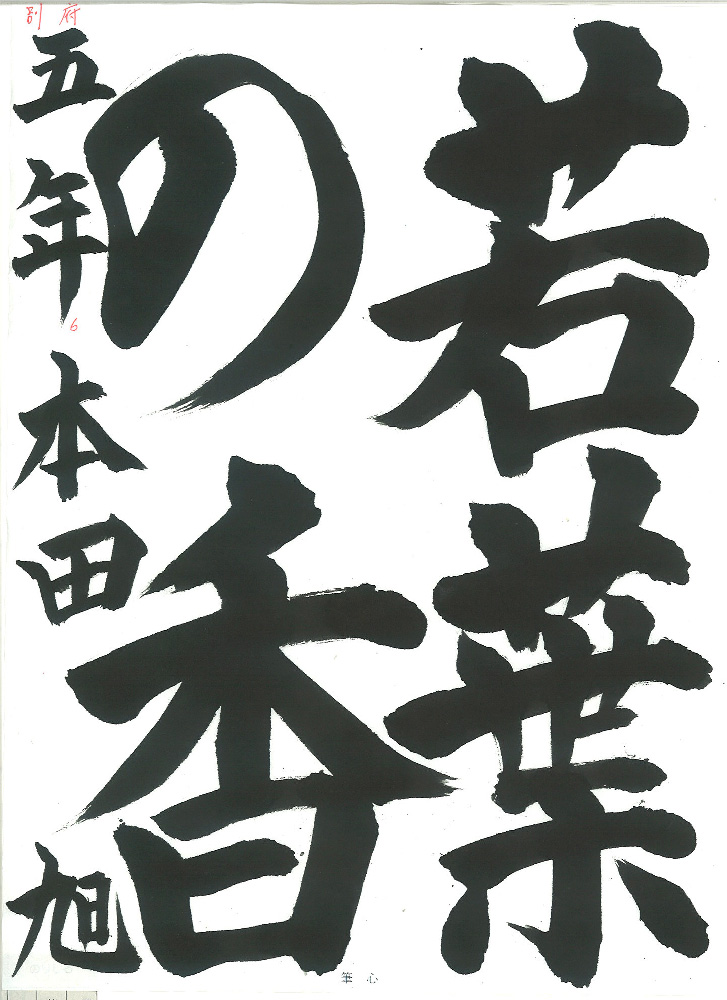 若葉
の香
五年 本田 旭
別府
6
筆心